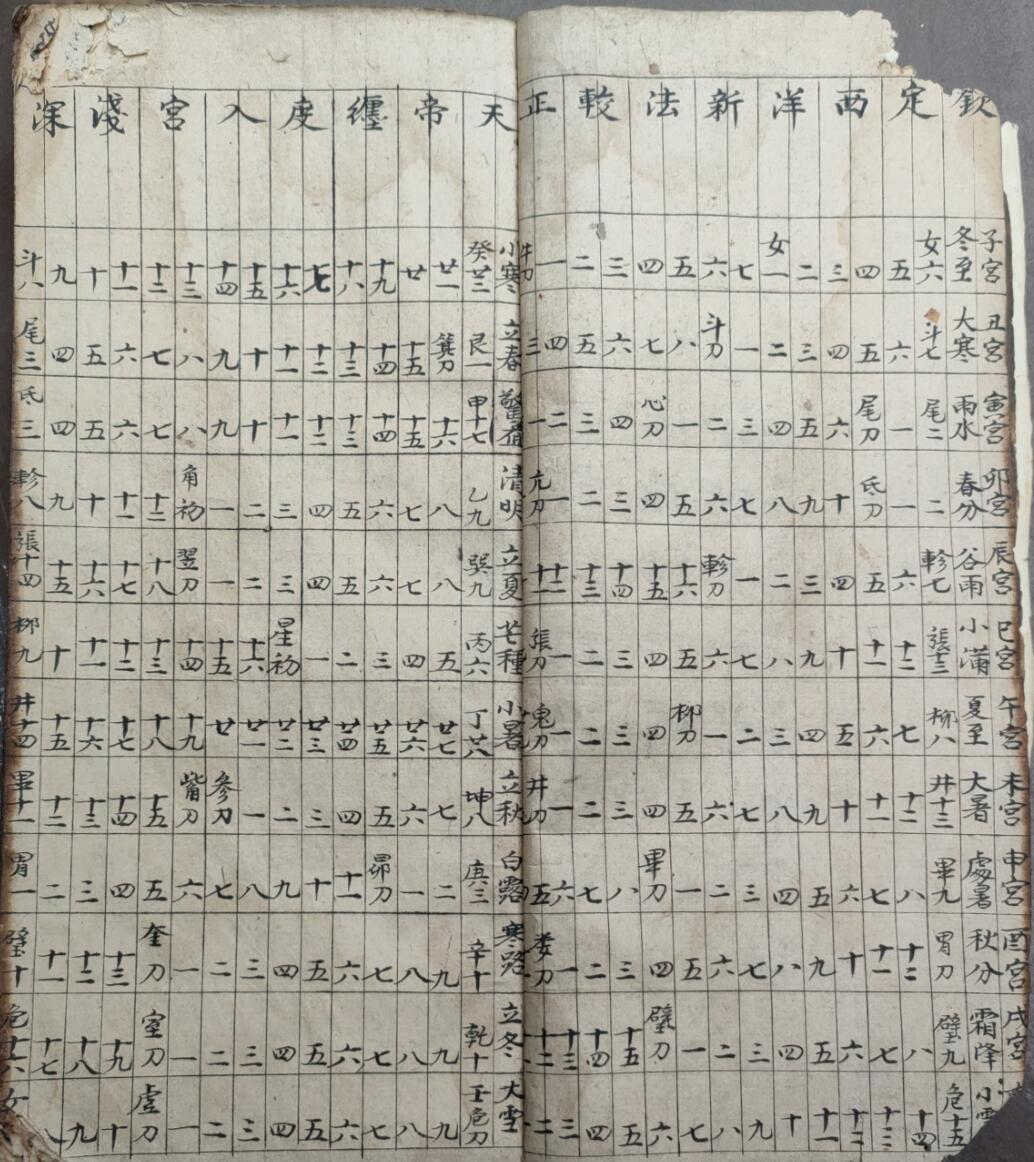 欽定西洋新法較正天帝纏度入宮淺深
子宮 冬至 女六 五 四 三 二 女一 七 六 五 四 三 二 一 牛刀 小寒 癸廿三 廿一 廿 十九 十八 十七 十六 十五 十四 十三 十二 十一 十 九 斗八
丑宮 大寒 斗七 六 五 四 三 二 一 斗刀 八 七 六 五 四 三 立春 艮一 箕刀 十五 十四 十三 十二 十一 十 九 八 七 六 五 四 尾三
寅宮 雨水 尾二 一 尾刀 六 五 四 三 二 一 心刀 四 三 二 一 驚蟄 甲十七 十六 十五 十四 十三 十二 十一 十 九 八 七 六 五 四 氐三
卯宮 春分 二 一 氐刀 十 九 八 七 六 五 四 三 二 一 亢刀 清明 乙九 八 七 六 五 四 三 二 一 角初 十二 十一 十 九 軫八
辰宮 谷雨 軫七 六 五 四 三 二 一 軫刀 十六 十五 十四 十三 十二 十一 立夏 巽九 八 七 六 五 四 三 二 一 翌刀 十八 十七 十六 十五 張十四
巳宮 小滿 張十三 十二 十一 十 九 八 七 六 五 四 三 二 一 張刀 芒種 丙六 五 四 三 二 一 星初 十六 十五 十四 十三 十二 十一 十 柳九
午宮 夏至 柳八 七 六 五 四 三 二 一 柳刀 四 三 二 一 鬼刀 小暑 丁廿八 廿七 廿六 廿五 廿四 廿三 廿二 廿一 廿 十九 十八 十七 十六 十五 井十四
未宮 大暑 井十三 十二 十一 十 九 八 七 六 五 四 三 二 一 井刀 立秋 坤八 七 六 五 四 三 二 一 参刀 觜刀 十五 十四 十三 十二 畢十一
申宮 處暑 畢九 八 七 六 五 四 三 二 一 畢刀 八 七 六 五 白露 庚三 二 一 昴刀 十一 十 九 八 七 六 五 四 三 二 胃一
酉宮 秋分 胃刀 十二 十一 十 九 八 七 六 五 四 三 二 一 娄刀 寒路 辛十 九 八 七 六 五 四 三 二 一 奎刀 十三 十二 十一 壁十
戌宮 霜降 壁九 八 七 六 五 四 三 二 一 壁刀 十五 十四 十三 十二 立冬 乾十 九 八 七 六 五 四 三 二 一 室刀 十九 十八 十七 危十六
小雪 危十五 十四 十三 十二 十一 十 九 八 七 六 五 四 三 二 大雪 壬危刀 九 八 七 六 五 四 三 二 一 虚刀 十 九 八 女